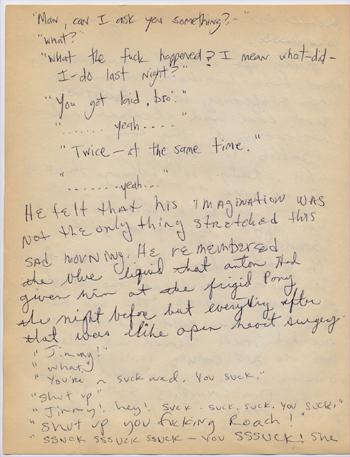 "Man, can I ask you something?-"
"what?"
"What the fuck happened? I mean what-did-
I-do last night?"
"You got laid, bro."
"....... yeah....."
"Twice - at the same time."
"........yeah..."
He felt that his imagination was
not the only thing stretched this
sad morning. He remembered
the blue liquid that anton had
given him at the frigid Pony
the night before but everything after
that was like open heart surgery.
"Jimmy!"
"what."
"You're a suck wad. You suck."
"shut up"
"Jimmy! hey! suck. suck. suck. You suck."
"shut up you fucking Roach!"
"ssuck sssuck ssuck - you SSSUCK! She